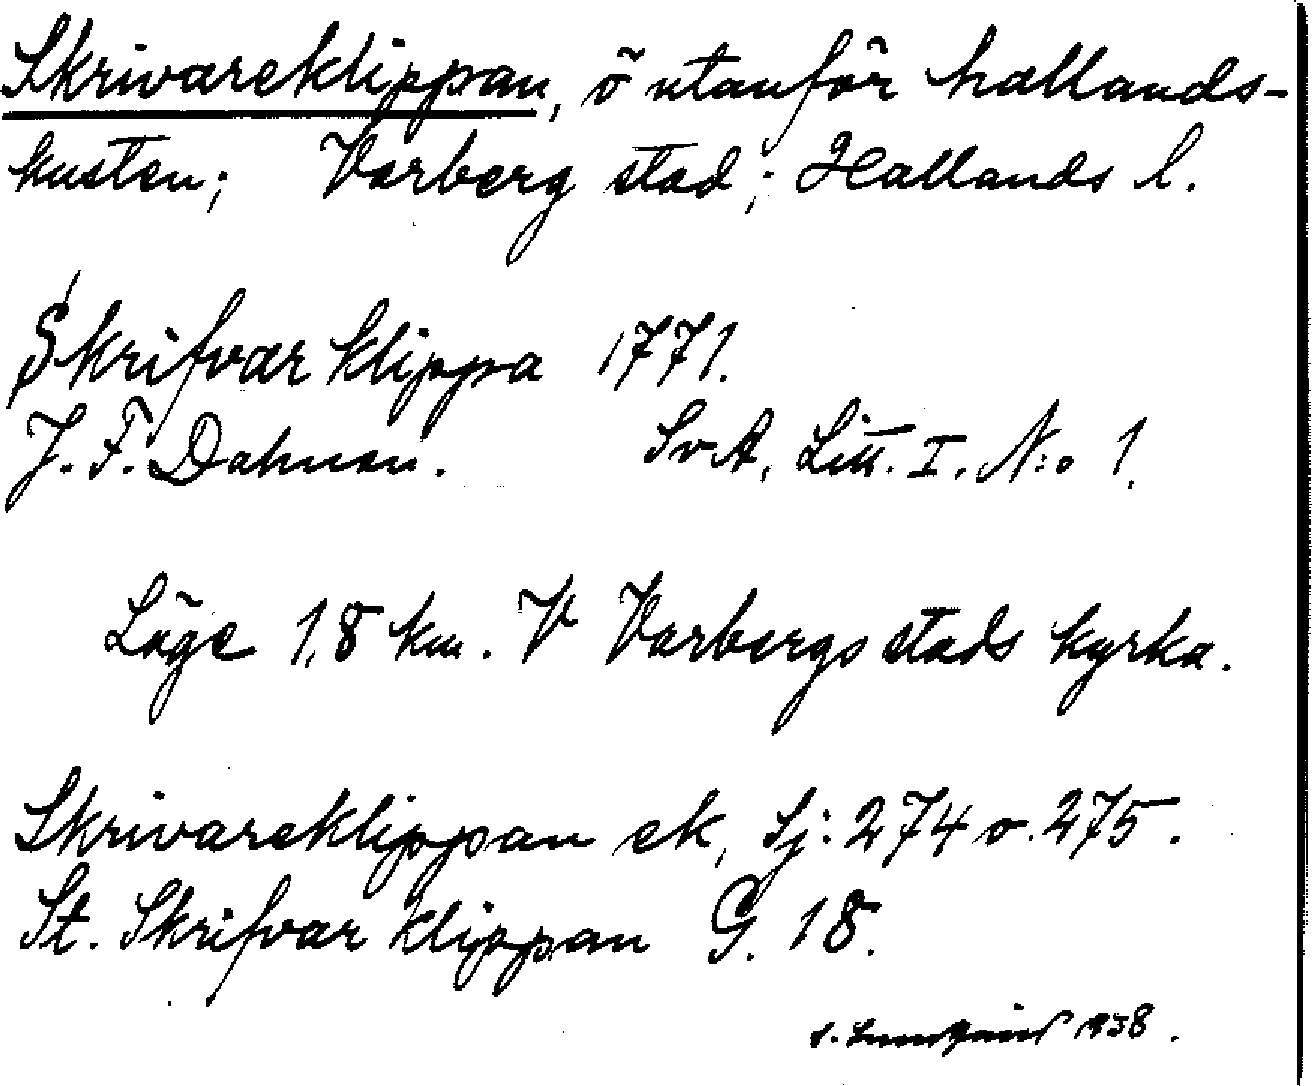 Skrivareklippan, ö utanför hallands-
kusten; Varberg stad; Hallands l.
Skrifvar klippa 1771.
J. F. Dahman. SvA, Litt. I. N:o 1.
Läge 1,8 km. V Varbergs stads kyrka.
Skrivareklippan ek, Sj: 274 o. 275.
St. Skrifvar klippan G. 18.
1938.